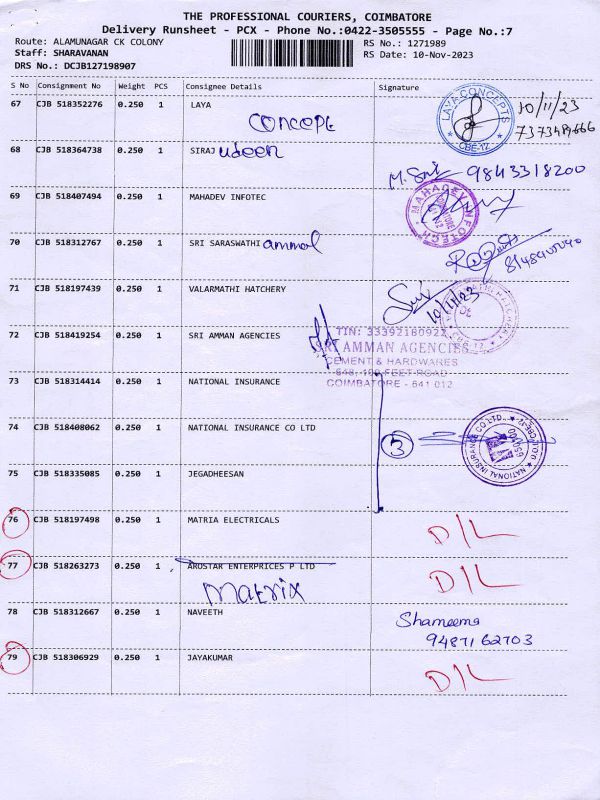 THE PROFESSIONAL COURIERS, COIMBATORE
Delivery Runsheet - PCX - Phone No.:0422-3505555 - Page No.:7
Route: ALAMUNAGAR CK COLONY
Staff: SHARAVANAN
DRS No.: DCJB127198907
RS No.: 1271989
RS Date: 10-Nov-2023
S No Consignment No Weight PCS Consignee Details Signature
67 CJB 518352276 0.250 1 LAYA
Concept
LAYA CONCEPTS
CBE-17
10/11/23
68 CJB 518364738 0.250 1 SIRAJ udeen
9843318200
69 CJB 518407494 0.250 1 MAHADEV INFOTEC
MAHADEV INFOTECH
70 CJB 518312767 0.250 1 SRI SARASWATHI ammal
71 CJB 518197439 0.250 1 VALARMATHI HATCHERY
10/11/23
72 CJB 518419254 0.250 1 SRI AMMAN AGENCIES
TIN: 33392180922
SRI AMMAN AGENCIES
CEMENT & HARDWARES
COIMBATORE - 641 012
73 CJB 518314414 0.250 1 NATIONAL INSURANCE
74 CJB 518408062 0.250 1 NATIONAL INSURANCE CO LTD
3
NATIONAL INSURANCE CO LTD.,
75 CJB 518335085 0.250 1 JEGADHEESAN
76 CJB 518197498 0.250 1 MATRIA ELECTRICALS
D/L
77 CJB 518263273 0.250 1 AROSTAR ENTERPRICES P LTD
D/L
Matrix
78 CJB 518312667 0.250 1 NAVEETH
Shameema
9487162703
79 CJB 518306929 0.250 1 JAYAKUMAR
D/L